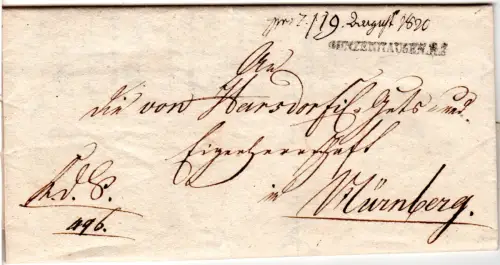 19. August 1820
GUNZENHAUSEN. R.3
An
die von Harsdorfische Guts- und
Eigenherrschaft
in
Nürnberg.
R. d. S.
496.